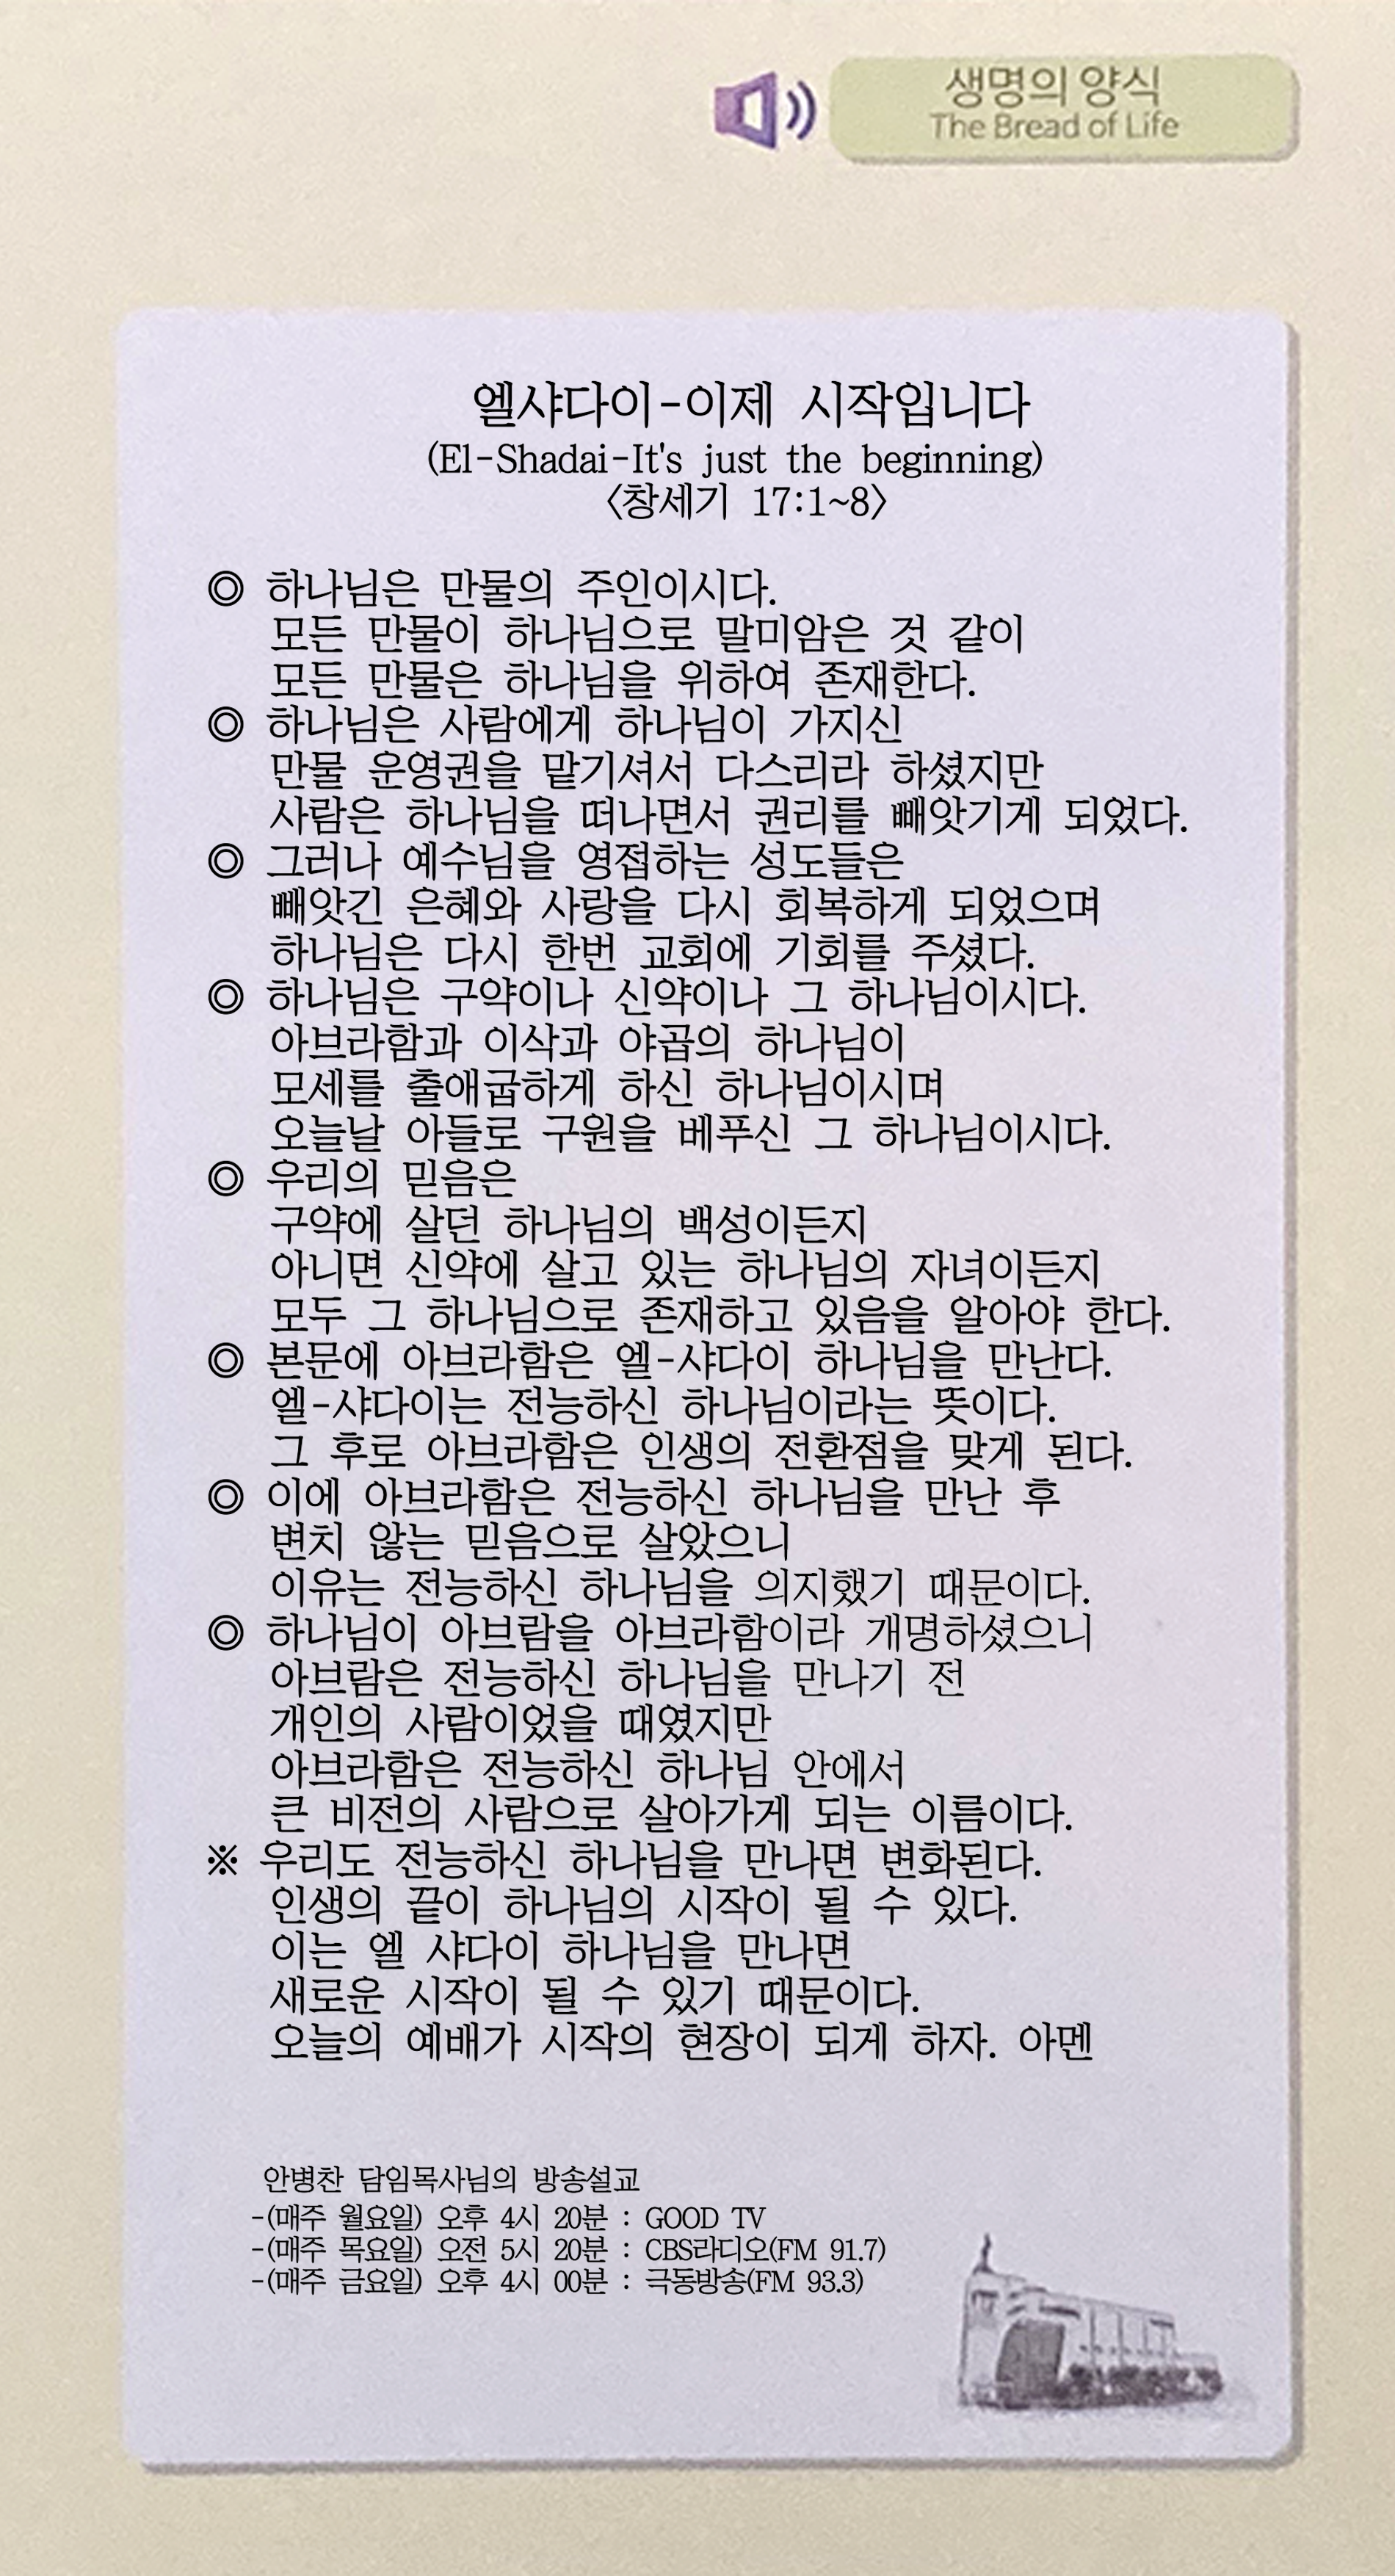 생명의 양식
The Bread of Life
엘샤다이-이제 시작입니다
(El-Shadai-It's just the beginning)
<창세기 17:1~8>
◎ 하나님은 만물의 주인이시다.
모든 만물이 하나님으로 말미암은 것 같이
모든 만물은 하나님을 위하여 존재한다.
◎ 하나님은 사람에게 하나님이 가지신
만물 운영권을 맡기셔서 다스리라 하셨지만
사람은 하나님을 떠나면서 권리를 빼앗기게 되었다.
◎ 그러나 예수님을 영접하는 성도들은
빼앗긴 은혜와 사랑을 다시 회복하게 되었으며
하나님은 다시 한번 교회에 기회를 주셨다.
◎ 하나님은 구약이나 신약이나 그 하나님이시다.
아브라함과 이삭과 야곱의 하나님이
모세를 출애굽하게 하신 하나님이시며
오늘날 아들로 구원을 베푸신 그 하나님이시다.
◎ 우리의 믿음은
구약에 살던 하나님의 백성이든지
아니면 신약에 살고 있는 하나님의 자녀이든지
모두 그 하나님으로 존재하고 있음을 알아야 한다.
◎ 본문에 아브라함은 엘-샤다이 하나님을 만난다.
엘-샤다이는 전능하신 하나님이라는 뜻이다.
그 후로 아브라함은 인생의 전환점을 맞게 된다.
◎ 이에 아브라함은 전능하신 하나님을 만난 후
변치 않는 믿음으로 살았으니
이유는 전능하신 하나님을 의지했기 때문이다.
◎ 하나님이 아브람을 아브라함이라 개명하셨으니
아브람은 전능하신 하나님을 만나기 전
개인의 사람이었을 때였지만
아브라함은 전능하신 하나님 안에서
큰 비전의 사람으로 살아가게 되는 이름이다.
※ 우리도 전능하신 하나님을 만나면 변화된다.
인생의 끝이 하나님의 시작이 될 수 있다.
이는 엘 샤다이 하나님을 만나면
새로운 시작이 될 수 있기 때문이다.
오늘의 예배가 시작의 현장이 되게 하자. 아멘
안병찬 담임목사님의 방송설교
-(매주 월요일) 오후 4시 20분 : GOOD TV
-(매주 목요일) 오전 5시 20분 : CBS라디오(FM 91.7)
-(매주 금요일) 오후 4시 00분 : 극동방송(FM 93.3)